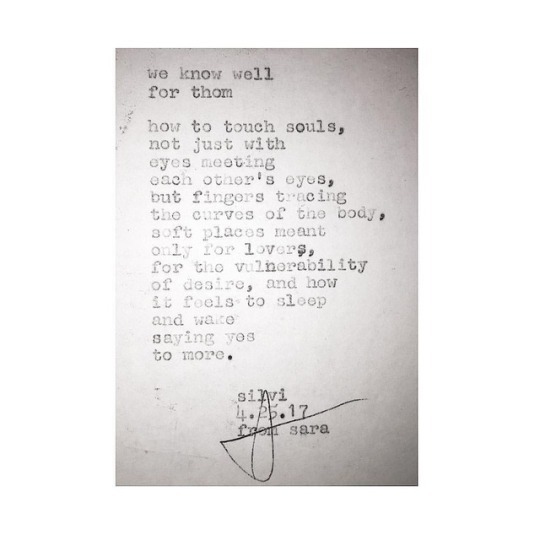 we know well
for thom
how to touch souls,
not just with
eyes meeting
each other's eyes,
but fingers tracing
the curves of the body,
soft places meant
only for lovers,
for the vulnerability
of desire, and how
it feels to sleep
and wake
saying yes
to more.
silvi
4.25.17
from sara